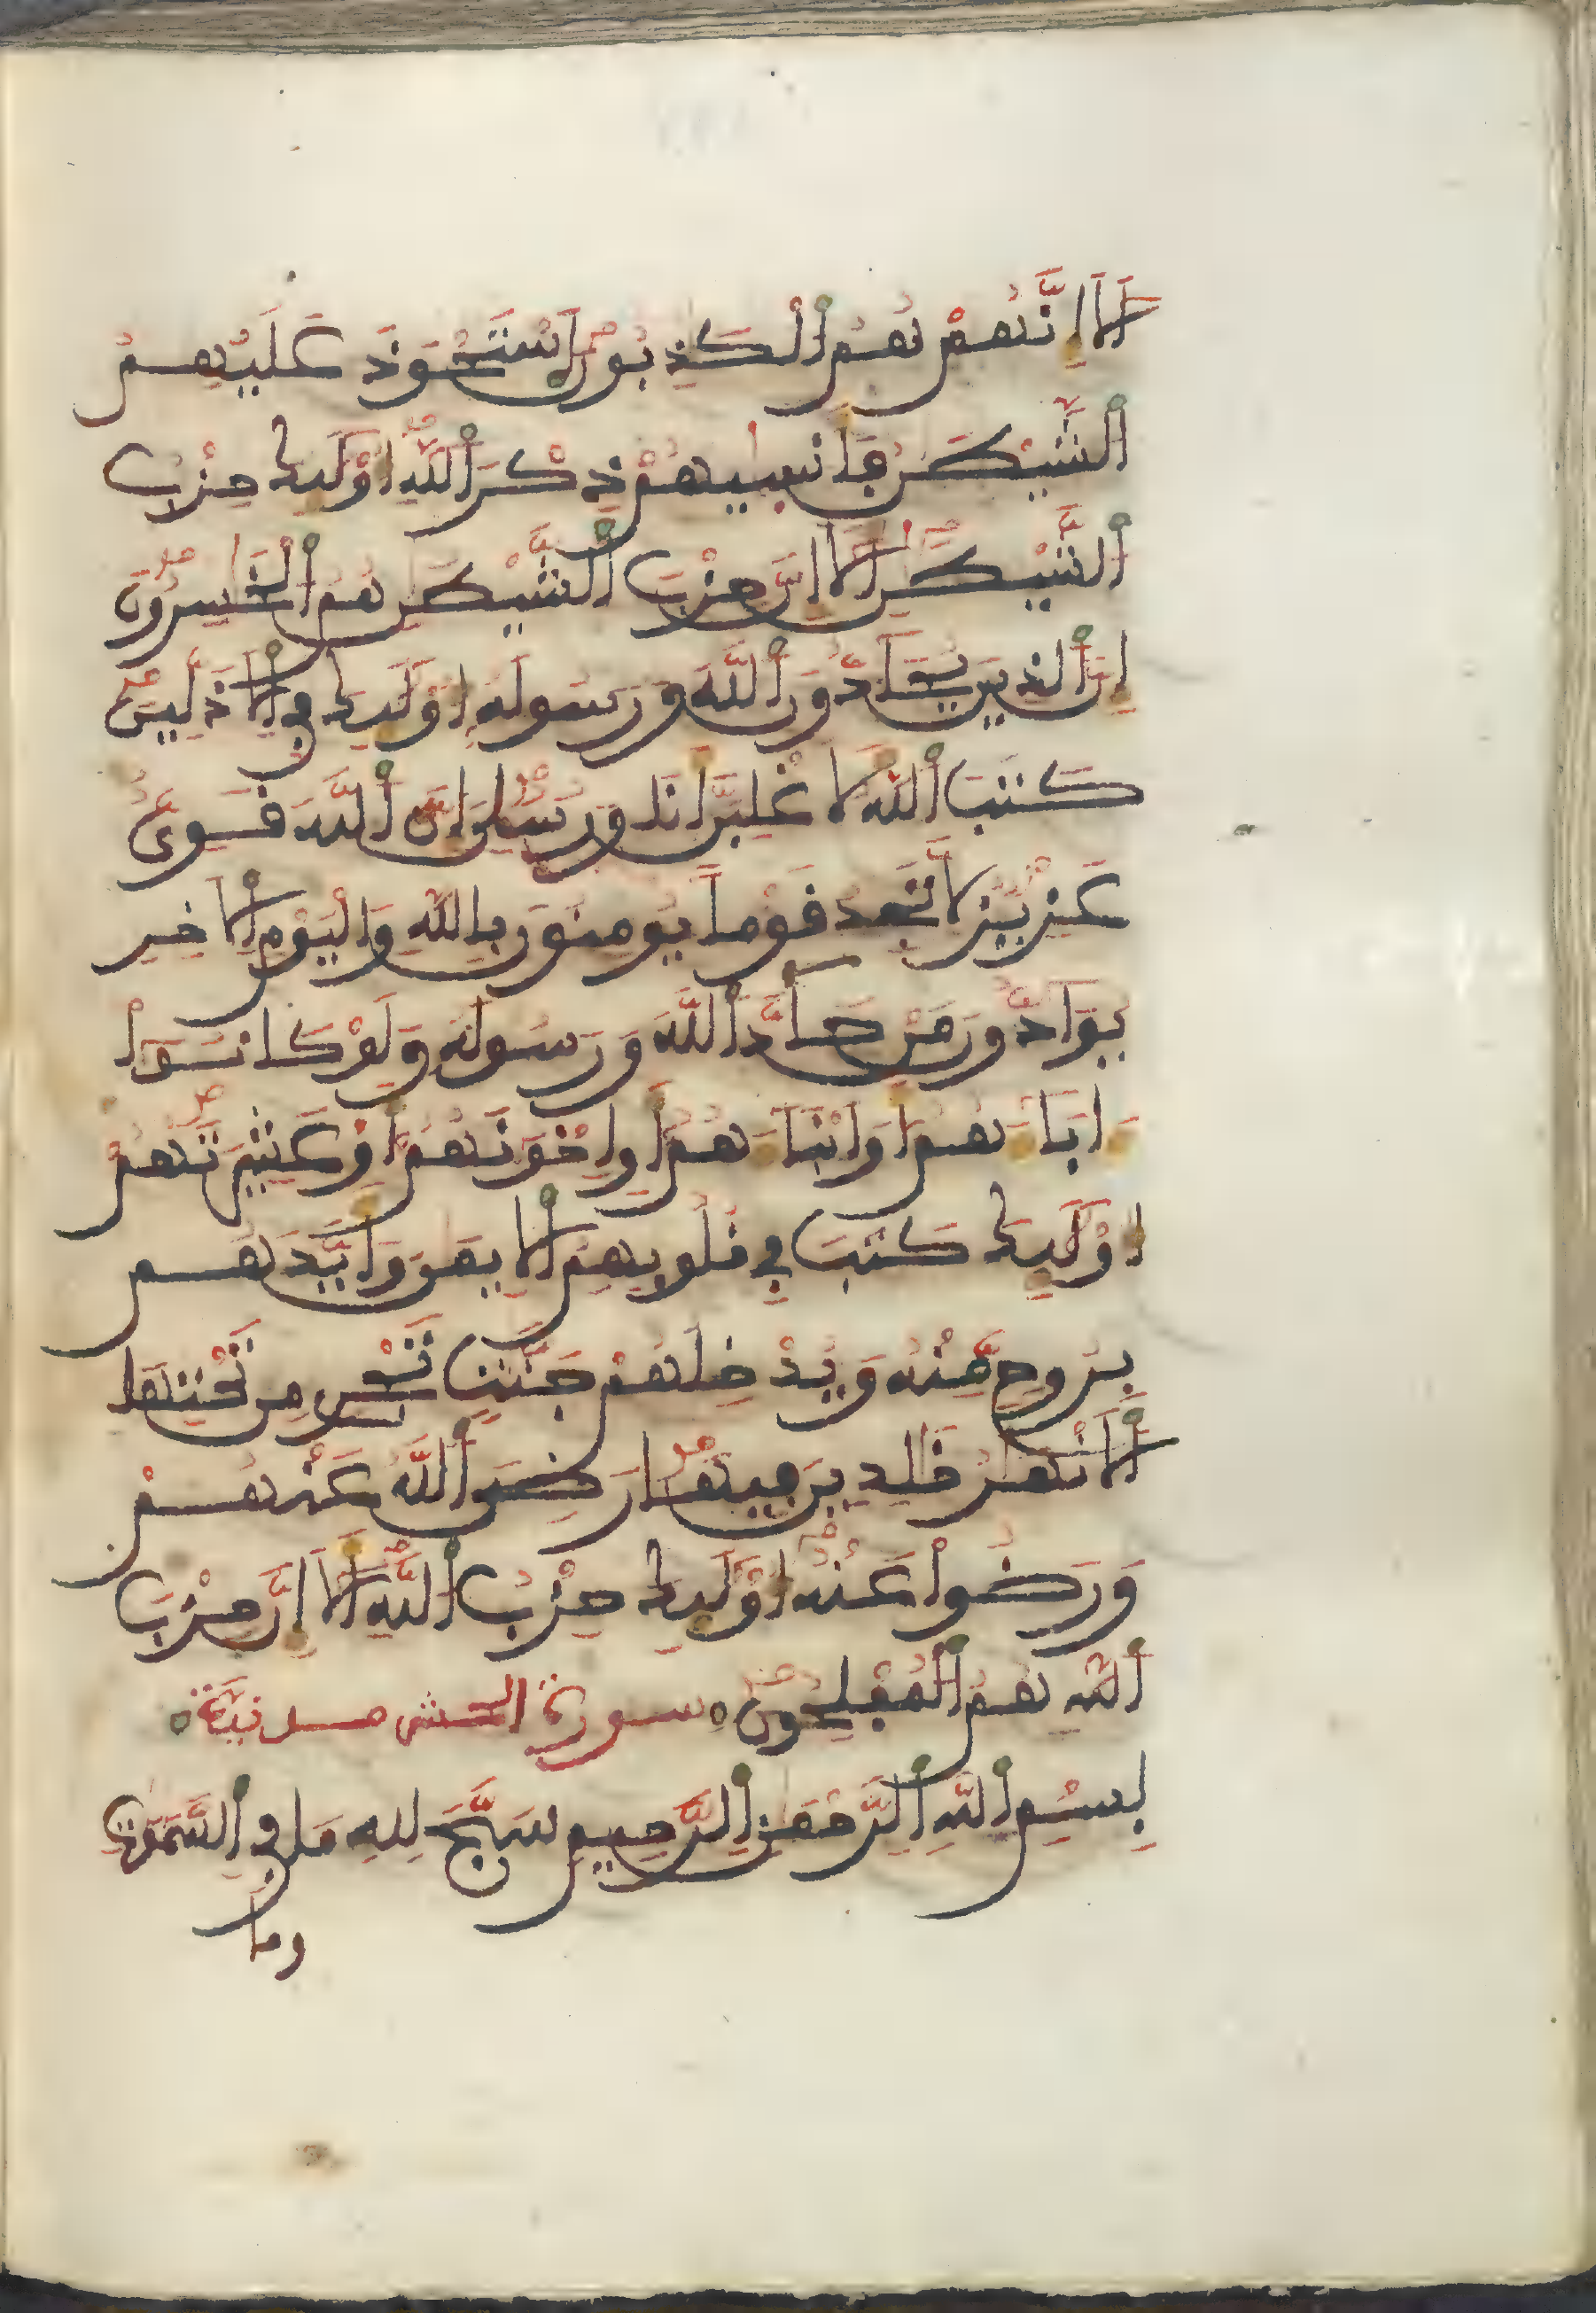 أَلَا إِنَّهُمْ هُمُ ٱلْكَٰذِبُونَ ٱسْتَحْوَذَ عَلَيْهِمُ
ٱلشَّيْطَٰنُ فَأَنسَىٰهُمْ ذِكْرَ ٱللَّهِ أُوْلَٰٓئِكَ حِزْبُ
ٱلشَّيْطَٰنِ أَلَا إِنَّ حِزْبَ ٱلشَّيْطَٰنِ هُمُ ٱلْخَٰسِرُونَ
إِنَّ ٱلذِينَ يُحَآدُّونَ ٱللَّهَ وَرَسُولَهُ أُوْلَٰٓئِكَ فِي ٱلْأَذَلِّينَ
كَتَبَ ٱللَّهُ لَأَغْلِبَنَّ أَنَا وَرُسُلِيَ إِنَّ ٱللَّهَ قَوِيٌّ
عَزِيزٌ لَّا تَجِدُ قَوْماً يُومِنُونَ بِاللَّهِ وَالْيَوْمِ ٱلْأَخِرِ
يُوَآدُّونَ مَنْ حَآدَّ ٱللَّهَ وَرَسُولَهُ وَلَوْ كَانُوٓاْ
ءَابَآءَهُمُ أَوَ ابْنَآءَهُمُ أَوِ اخْوَٰنَهُمُ أَوْ عَشِيرَتَهُمُ
أُوْلَٰٓئِكَ كَتَبَ فِي قُلُوبِهِمُ ٱلْإِيمَٰنَ وَأَيَّدَهُم
بِرُوحٍ مِّنْهُ وَيُدْخِلُهُمْ جَنَّٰتٍ تَجْرِي مِن تَحْتِهَا
ٱلْأَنْهَٰرُ خَٰلِدِينَ فِيهَا رَضِيَ ٱللَّهُ عَنْهُمْ
وَرَضُواْ عَنْهُ أُوْلَٰٓئِكَ حِزْبُ ٱللَّهِ أَلَا إِنَّ حِزْبَ
ٱللَّهِ هُمُ ٱلْمُفْلِحُونَ سورة الحشر مدنيَّة
بِسْمِ ٱللَّهِ ٱلرَّحْمَٰنِ ٱلرَّحِيمِ سَبَّحَ لِلهِ مَا فِي ٱلسَّمَٰوَٰتِ
وما